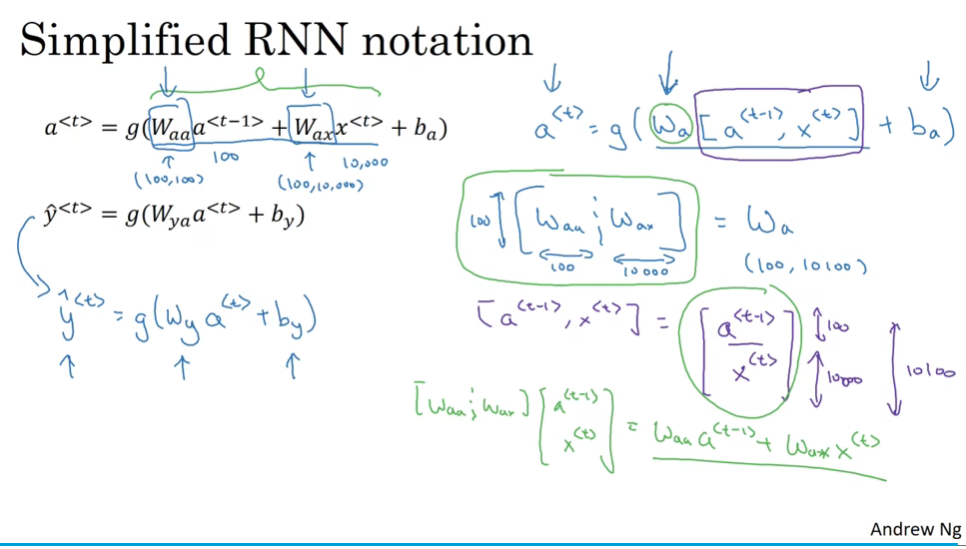 Simplified RNN notation
a<t> = g(Waa a<t−1> + Wax x<t> + ba)
100 10,000
(100,100) (100,10,000)
ŷ<t> = g(Wya a<t> + by)
ŷ<t> = g(Wy a<t> + by)
a<t> = g(Wa [a<t-1>, x<t>] + ba)
100 [Waa ; Wax] = Wa
100 10000 (100, 10100)
[a<t-1>, x<t>] = [a<t-1> 100
x<t>] 10000 10100
[Waa ; Wax] [a<t-1>
x<t>] = Waa a<t-1> + Wax x<t>
Andrew Ng